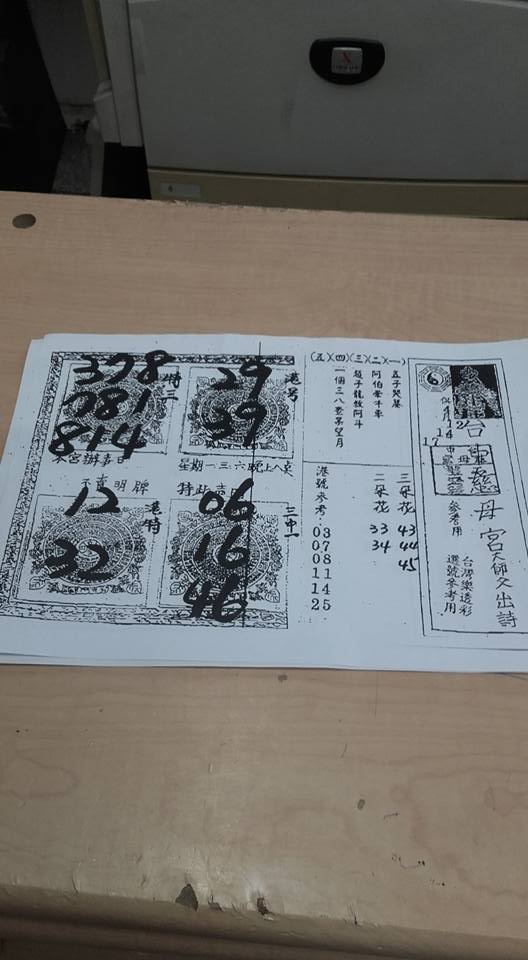 6
台
申慈母宮天師父出詩
參考用
台灣樂透彩
選號參考用
(五)(四)(三)(二)(一)
五子哭墓
阿伯牽牛車
趙子龍救阿斗
一個三八查某望月
三朵花 43 44 45
二朵花 33 34
港號參考:03 07 08 11 14 25
港号
29
39
特三
378
081
814
本宮辦事日
星期一三六晚上八
明牌
港特
12
32
三中一
06
16
46